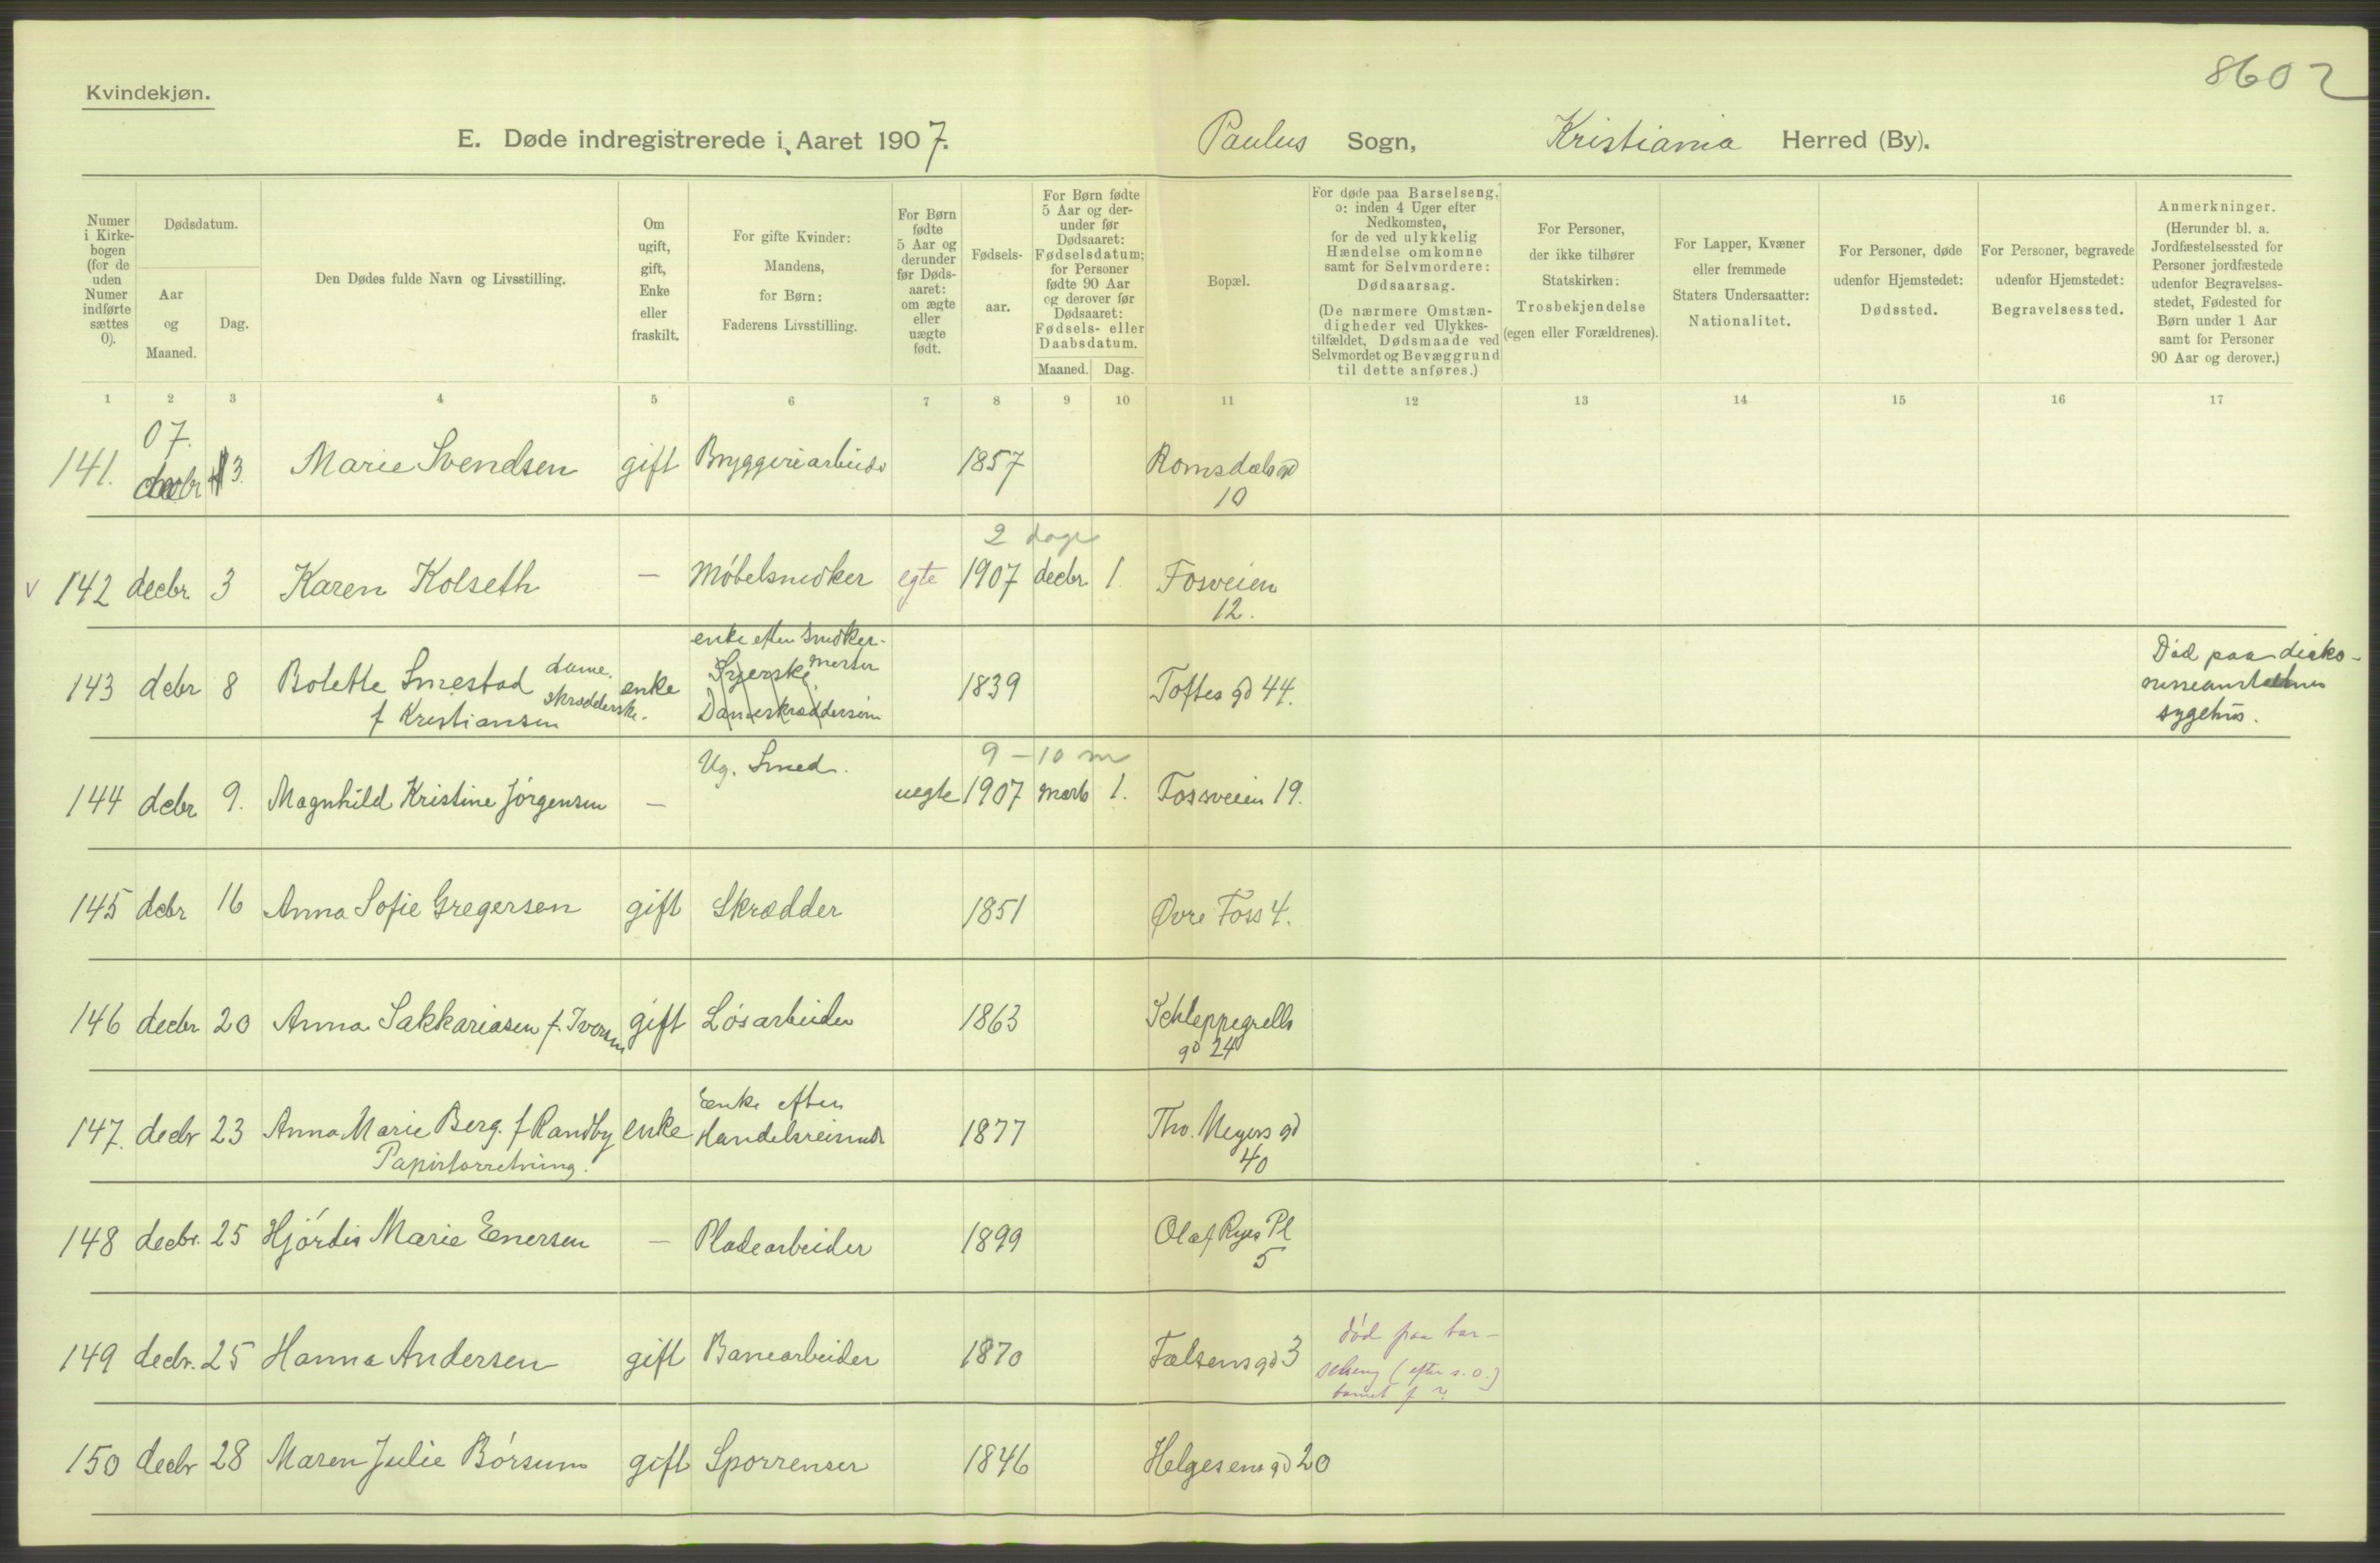 8602
Kvindekjøn.
E. Døde indregistrerede i Aaret 1907. Paulus Sogn, Kristiania Herred (By).
Numer i Kirkebogen (for de uden Numer indførte sættes 0).
Dødsdatum.
Aar og Maaned.
Dag.
Den Dødes fulde Navn og Livsstilling.
Om ugift, gift, Enke eller fraskilt.
For gifte Kvinder: Mandens, for Børn: Faderens Livsstilling.
For Børn fødte 5 Aar og derunder før Dødsaaret: om ægte eller uægte født.
Fødselsaar.
For Børn fødte 5 Aar og derunder før Dødsaaret: Fødselsdatum; for Personer fødte 90 Aar og derover før Dødsaaret: Fødsels- eller Daabsdatum.
Maaned. Dag.
Bopæl.
For døde paa Barselseng, ɔ: inden 4 Uger efter Nedkomsten, for de ved ulykkelig Hændelse omkomne samt for Selvmordere: Dødsaarsag.
(De nærmere Omstændigheder ved Ulykkestilfældet, Dødsmaade ved Selvmordet og Bevæggrund til dette anføres.)
For Personer, der ikke tilhører Statskirken: Trosbekjendelse (egen eller Forældrenes).
For Lapper, Kvæner eller fremmede Staters Undersaatter: Nationalitet.
For Personer, døde udenfor Hjemstedet: Dødssted.
For Personer, begravede udenfor Hjemstedet: Begravelsessted.
Anmerkninger.
(Herunder bl. a. Jordfæstelsessted for Personer jordfæstede udenfor Begravelsesstedet, Fødested for Børn under 1 Aar samt for Personer 90 Aar og derover.)
1 2 3 4 5 6 7 8 9 10 11 12 13 14 15 16 17
07.
141. decbr 3. Marie Svendsen gift Bryggeriarbeider 1857 Romsdalsgd
10
2 dage
v 142 decbr 3 Karen Kolseth — Møbelsnedker egte 1907 decbr 1. Fosveien
12.
enke efter snedkermester
143 debr 8 Bolette Smestad dame skrædderske. enke Syerske 1839 Toftes gd 44. Død paa diako-
f Kristiansen Dameskrædderserin sygehus.
Ug. Smed. 9-10 m
144 debr 9. Magnhild Kristine Jørgensen — uegte 1907 marts 1. Fossveien 19.
145 debr 16 Anna Sofie Gregersen gift Skrædder 1851 Øvre Foss 4.
146 decbr 20 Anna Sakkariasen f. Iversen gift Løsarbeider 1863 Schleppegrells
gd 24
Enke efter
147. decbr 23 Anna Marie Berg. f Randby enke Handelsreisende 1877 Tho. Meyers gd
Papirforretning. 40
148 decbr. 25 Hjørdis Marie Enersen — Pladearbeider 1899 Olaf Ryes Pl
5
149 decbr. 25 Hanna Andersen gift Banearbeider 1870 Falsens gd 3 død paa bar-
selseng (efter s. o.)
barnet f
150 decbr 28 Maren Julie Børsum gift Sporrenser 1846 Helgesens gd 20